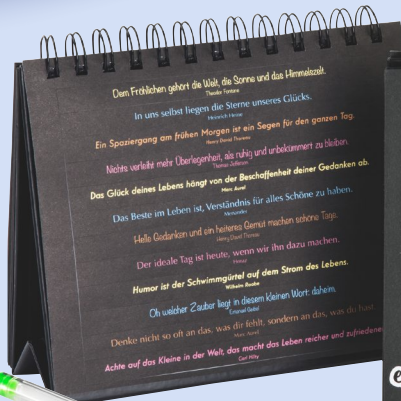 Dem Fröhlichen gehört die Welt, die Sonne und das Himmelszelt.
Theodor Fontane
In uns selbst liegen die Sterne unseres Glücks.
Heinrich Heine
Ein Spaziergang am frühen Morgen ist ein Segen für den ganzen Tag.
Henry David Thoreau
Nichts verleiht mehr Überlegenheit, als ruhig und unbekümmert zu bleiben.
Thomas Jefferson
Das Glück deines Lebens hängt von der Beschaffenheit deiner Gedanken ab.
Marc Aurel
Das Beste im Leben ist, Verständnis für alles Schöne zu haben.
Menander
Helle Gedanken und ein heiteres Gemüt machen schöne Tage.
Henry David Thoreau
Der ideale Tag ist heute, wenn wir ihn dazu machen.
Horaz
Humor ist der Schwimmgürtel auf dem Strom des Lebens.
Wilhelm Raabe
Oh welcher Zauber liegt in diesem kleinen Wort: daheim.
Emanuel Geibel
Denke nicht so oft an das, was dir fehlt, sondern an das, was du hast.
Marc Aurel
Achte auf das Kleine in der Welt, das macht das Leben reicher und zufriedener.
Carl Hilty